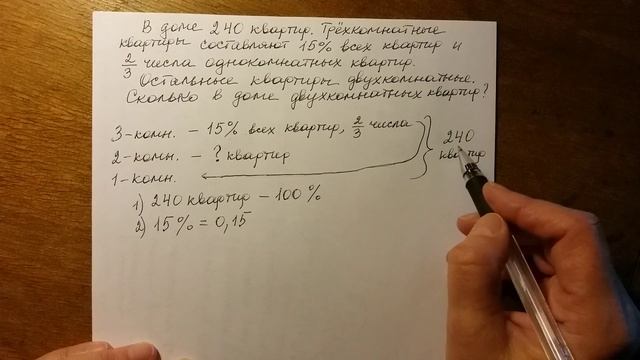 В доме 240 квартир. Трёхкомнатные
квартиры составляют 15% всех квартир и
2/3 числа однокомнатных квартир.
Остальные квартиры двухкомнатные.
Сколько в доме двухкомнатных квартир?
3-комн. - 15% всех квартир, 2/3 числа
2-комн. - ? квартир
1-комн.
240
квартир
1) 240 квартир - 100%
2) 15% = 0,15